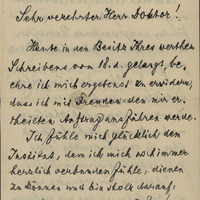 Sehr verehrter Herr Doktor!
Heute in den Besitz Ihres werthen
Schreibens vom 18. d. gelangt, be-
ehre ich mich ergebenst zu erwidern,
dass ich mit Freuden den mir er-
theilten Auftrag ausführen werde.
Ich fühle mich glücklich dem
Institut, dem ich mich noch immer
herzlich verbunden fühle, dienen
zu können und bin stolz darauf,